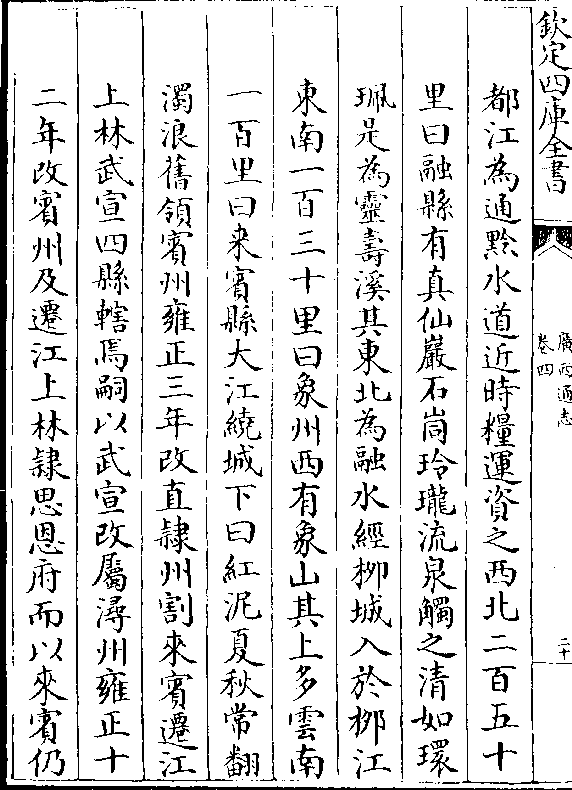 欽定四庫全書
廣西通志
卷四
二十
都江為通黔水道近時糧運資之西北二百五十
里曰融縣有真仙巖石崗玲瓏流泉觸之清如環
珮是為靈壽溪其東北為融水經柳城入於柳江
東南一百三十里曰象州西有象山其上多雲南
一百里曰来賓縣大江繞城下曰紅泥夏秋常翻
濁浪舊領賓州雍正三年改直隸州割來賓遷江
上林武宣四縣轄焉嗣以武宣改屬潯州雍正十
二年改賓州及遷江上林隸思恩府而以來賓仍